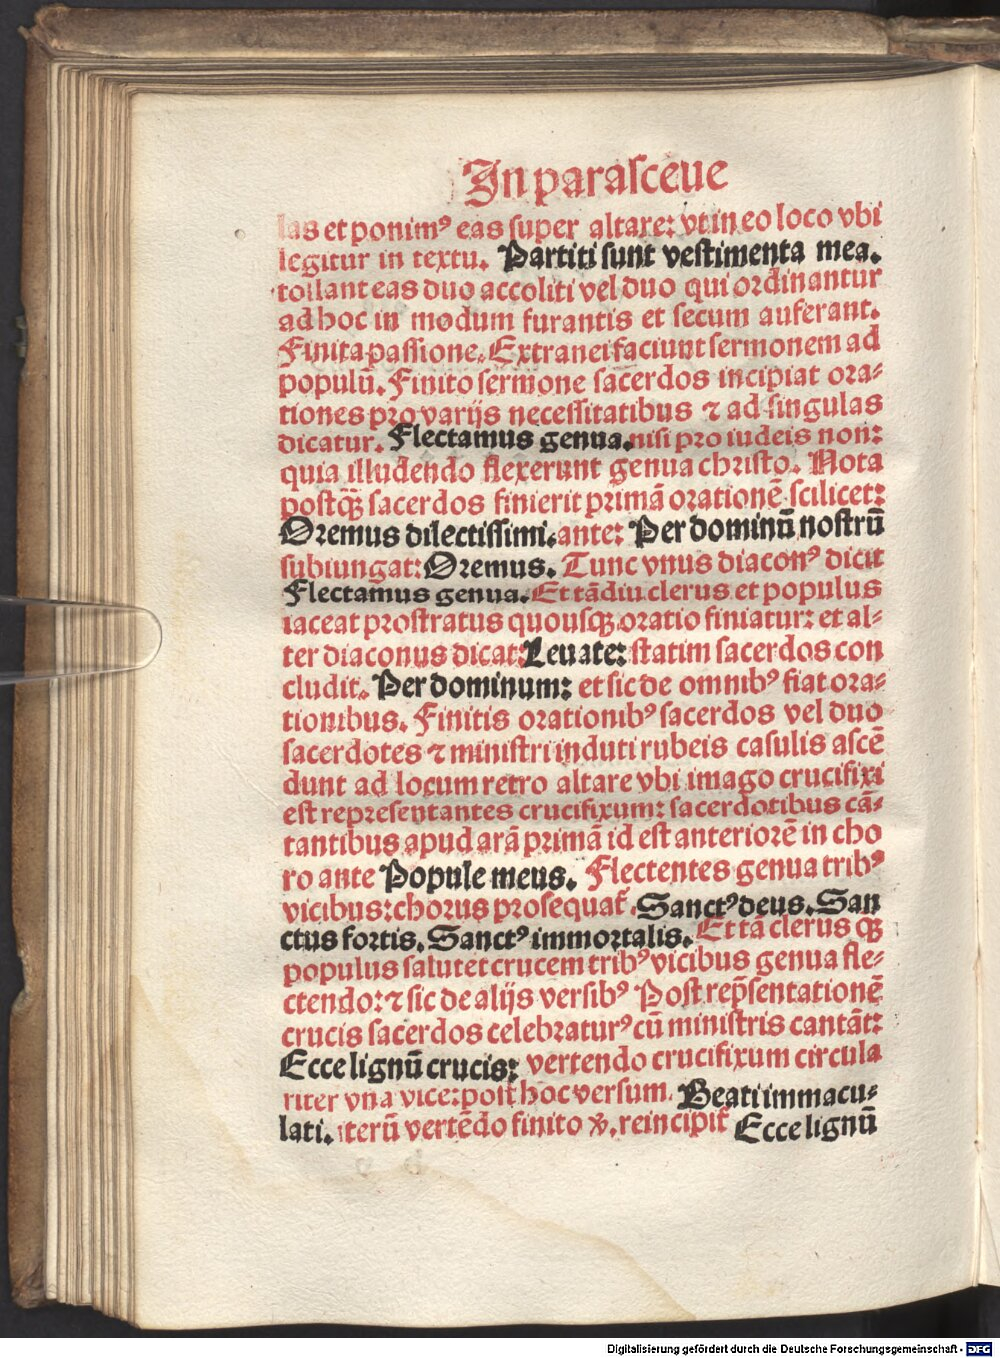 In parasceue
las et ponimꝰ eas super altare: vt in eo loco vbi
legitur in textu. Partiti sunt vestimenta mea.
tollant eas duo accoliti vel duo qui ordinantur
ad hoc in modum furantis et secum auferant.
Finita passione. Extranei faciunt sermonem ad
populū. Finito sermone sacerdos incipiat ora⸗
tiones pro varijs necessitatibus ⁊ ad singulas
dicatur. Flectamus genua. nisi pro iudeis non:
quia illudendo flexerunt genua christo. Nota
postqȝ sacerdos finierit primā orationē scilicet:
Oremus dilectissimi. ante: Per dominū nostrū
subiungat: Oremus. Tunc vnus diaconꝰ dicit
Flectamus genua. Et tādiu clerus et populus
iaceat prostratus quousqȝ oratio finiatur: et al⸗
ter diaconus dicat: Leuate: statim sacerdos con
cludit. Per dominum: et sic de omnibꝰ fiat ora⸗
tionibus. Finitis orationibꝰ sacerdos vel duo
sacerdotes ⁊ ministri induti rubeis casulis ascē
dunt ad locum retro altare vbi imago crucifixi
est representantes crucifixum: sacerdotibus cā⸗
tantibus apud arā primā id est anteriorē in cho
ro ante Popule meus. Flectentes genua tribꝰ
vicibus: chorus prosequat᷑. Sanctꝰ deus. San
ctus fortis. Sanctꝰ immortalis. Et tā clerus qȝ
populus salutet crucem tribꝰ vicibus genua fle⸗
ctendo: ⁊ sic de alijs versibꝰ Post rep̄sentationē
crucis sacerdos celebraturꝰ cū ministris cantāt:
Ecce lignū crucis: vertendo crucifixum circula
riter vna vice: post hoc versum. Beati immacu⸗
lati. iterū vertēdo finito ꝟ. reincipit᷑ Ecce lignū
Digitalisierung gefördert durch die Deutsche Forschungsgemeinschaft - DFG